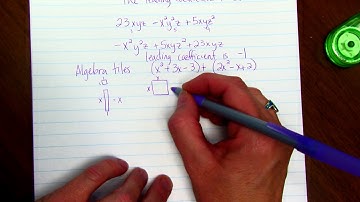 The leading
23xyz - x²y²z + 5xyz²
3 5 4
-x²y²z + 5xyz² + 23xyz
leading coefficient is -1
Algebra tiles (x² + 3x - 3) + (2x² - x + 2)
x - x x